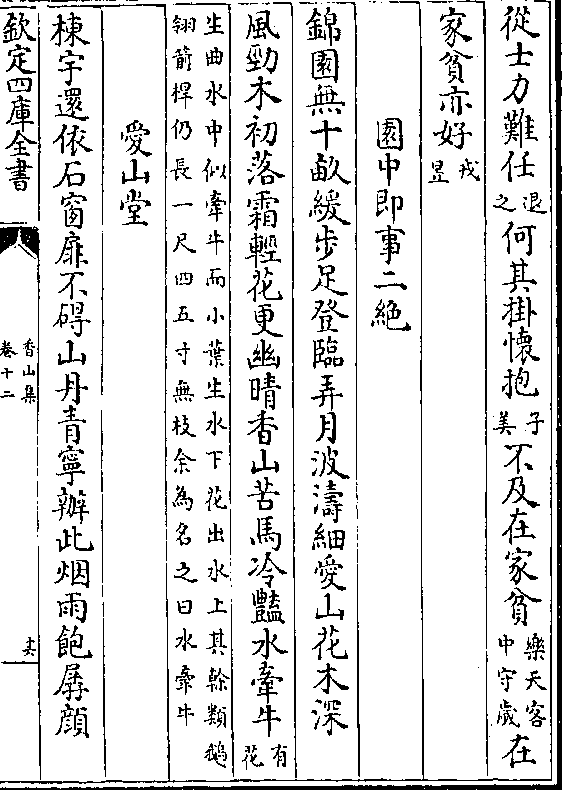 從士力難任退之何其掛懷抱子美不及在家貧樂天客中守歲在
家貧亦好戎昱
園中即事二絶
錦園無十畝緩步足登臨弄月波濤細愛山花木深
風勁木初落霜輕花更幽晴香山苦馬冷豔水牽牛有花
生曲水中似牽牛而小葉生水下花出水上其榦類鵝
翎箭桿仍長一尺四五寸無枝余為名之曰水牽牛
愛山堂
棟宇還依石窗扉不礙山丹青寧辦此烟雨飽孱顔
欽定四庫全書
香山集
卷十二